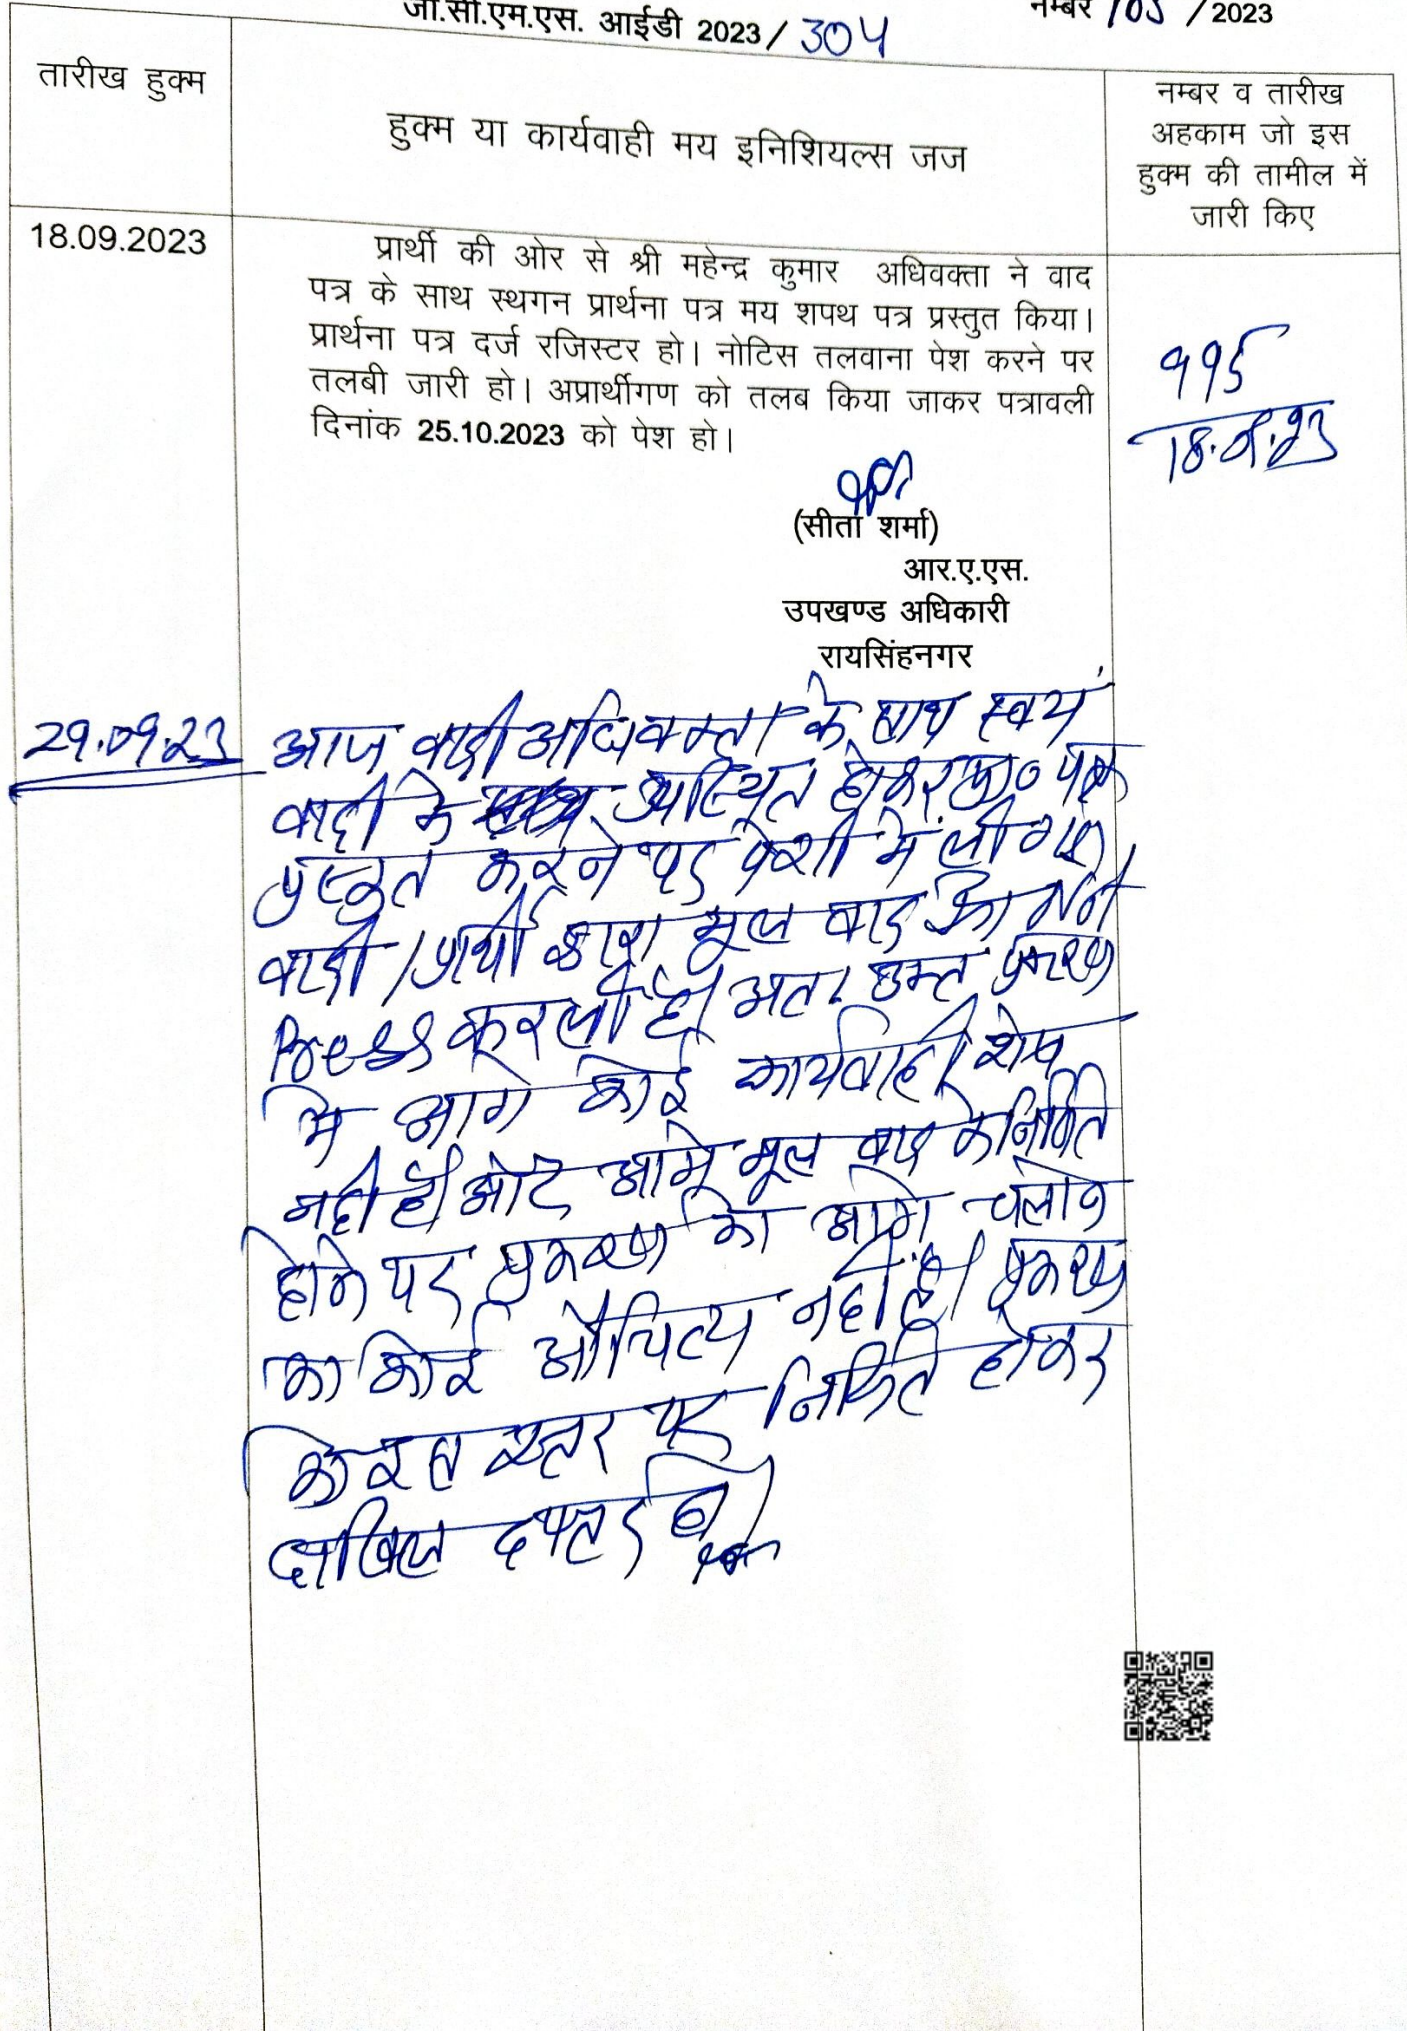 जी.सी.एम.एस. आईडी 2023/304
नम्बर 105 /2023
तारीख हुक्म
हुक्म या कार्यवाही मय इनिशियल्स जज
नम्बर व तारीख
अहकाम जो इस
हुक्म की तामील में
जारी किए
18.09.2023
प्रार्थी की ओर से श्री महेन्द्र कुमार अधिवक्ता ने वाद
पत्र के साथ स्थगन प्रार्थना पत्र मय शपथ पत्र प्रस्तुत किया।
प्रार्थना पत्र दर्ज रजिस्टर हो। नोटिस तलवाना पेश करने पर
तलबी जारी हो। अप्रार्थीगण को तलब किया जाकर पत्रावली
दिनांक 25.10.2023 को पेश हो।
995
18.09.23
(सीता शर्मा)
आर.ए.एस.
उपखण्ड अधिकारी
रायसिंहनगर
29.09.23
आज वादी अधिवक्ता के साथ स्वयं
वादी के उपस्थित होकर प्रा० पत्र
प्रस्तुत करने पर पेशी में ली गयी
वादी/प्रार्थी द्वारा मूल वाद को
Press कर ली है। अतः उक्त प्रकरण
में आगे कोई कार्यवाही शेष
नहीं है। और आगे मूल वाद के निर्णित
होने पर प्रकरण को आगे चलाने
का कोई औचित्य नहीं है। प्रकरण
को इस स्तर पर निर्णित होकर
दाखिल दफ्तर हो।